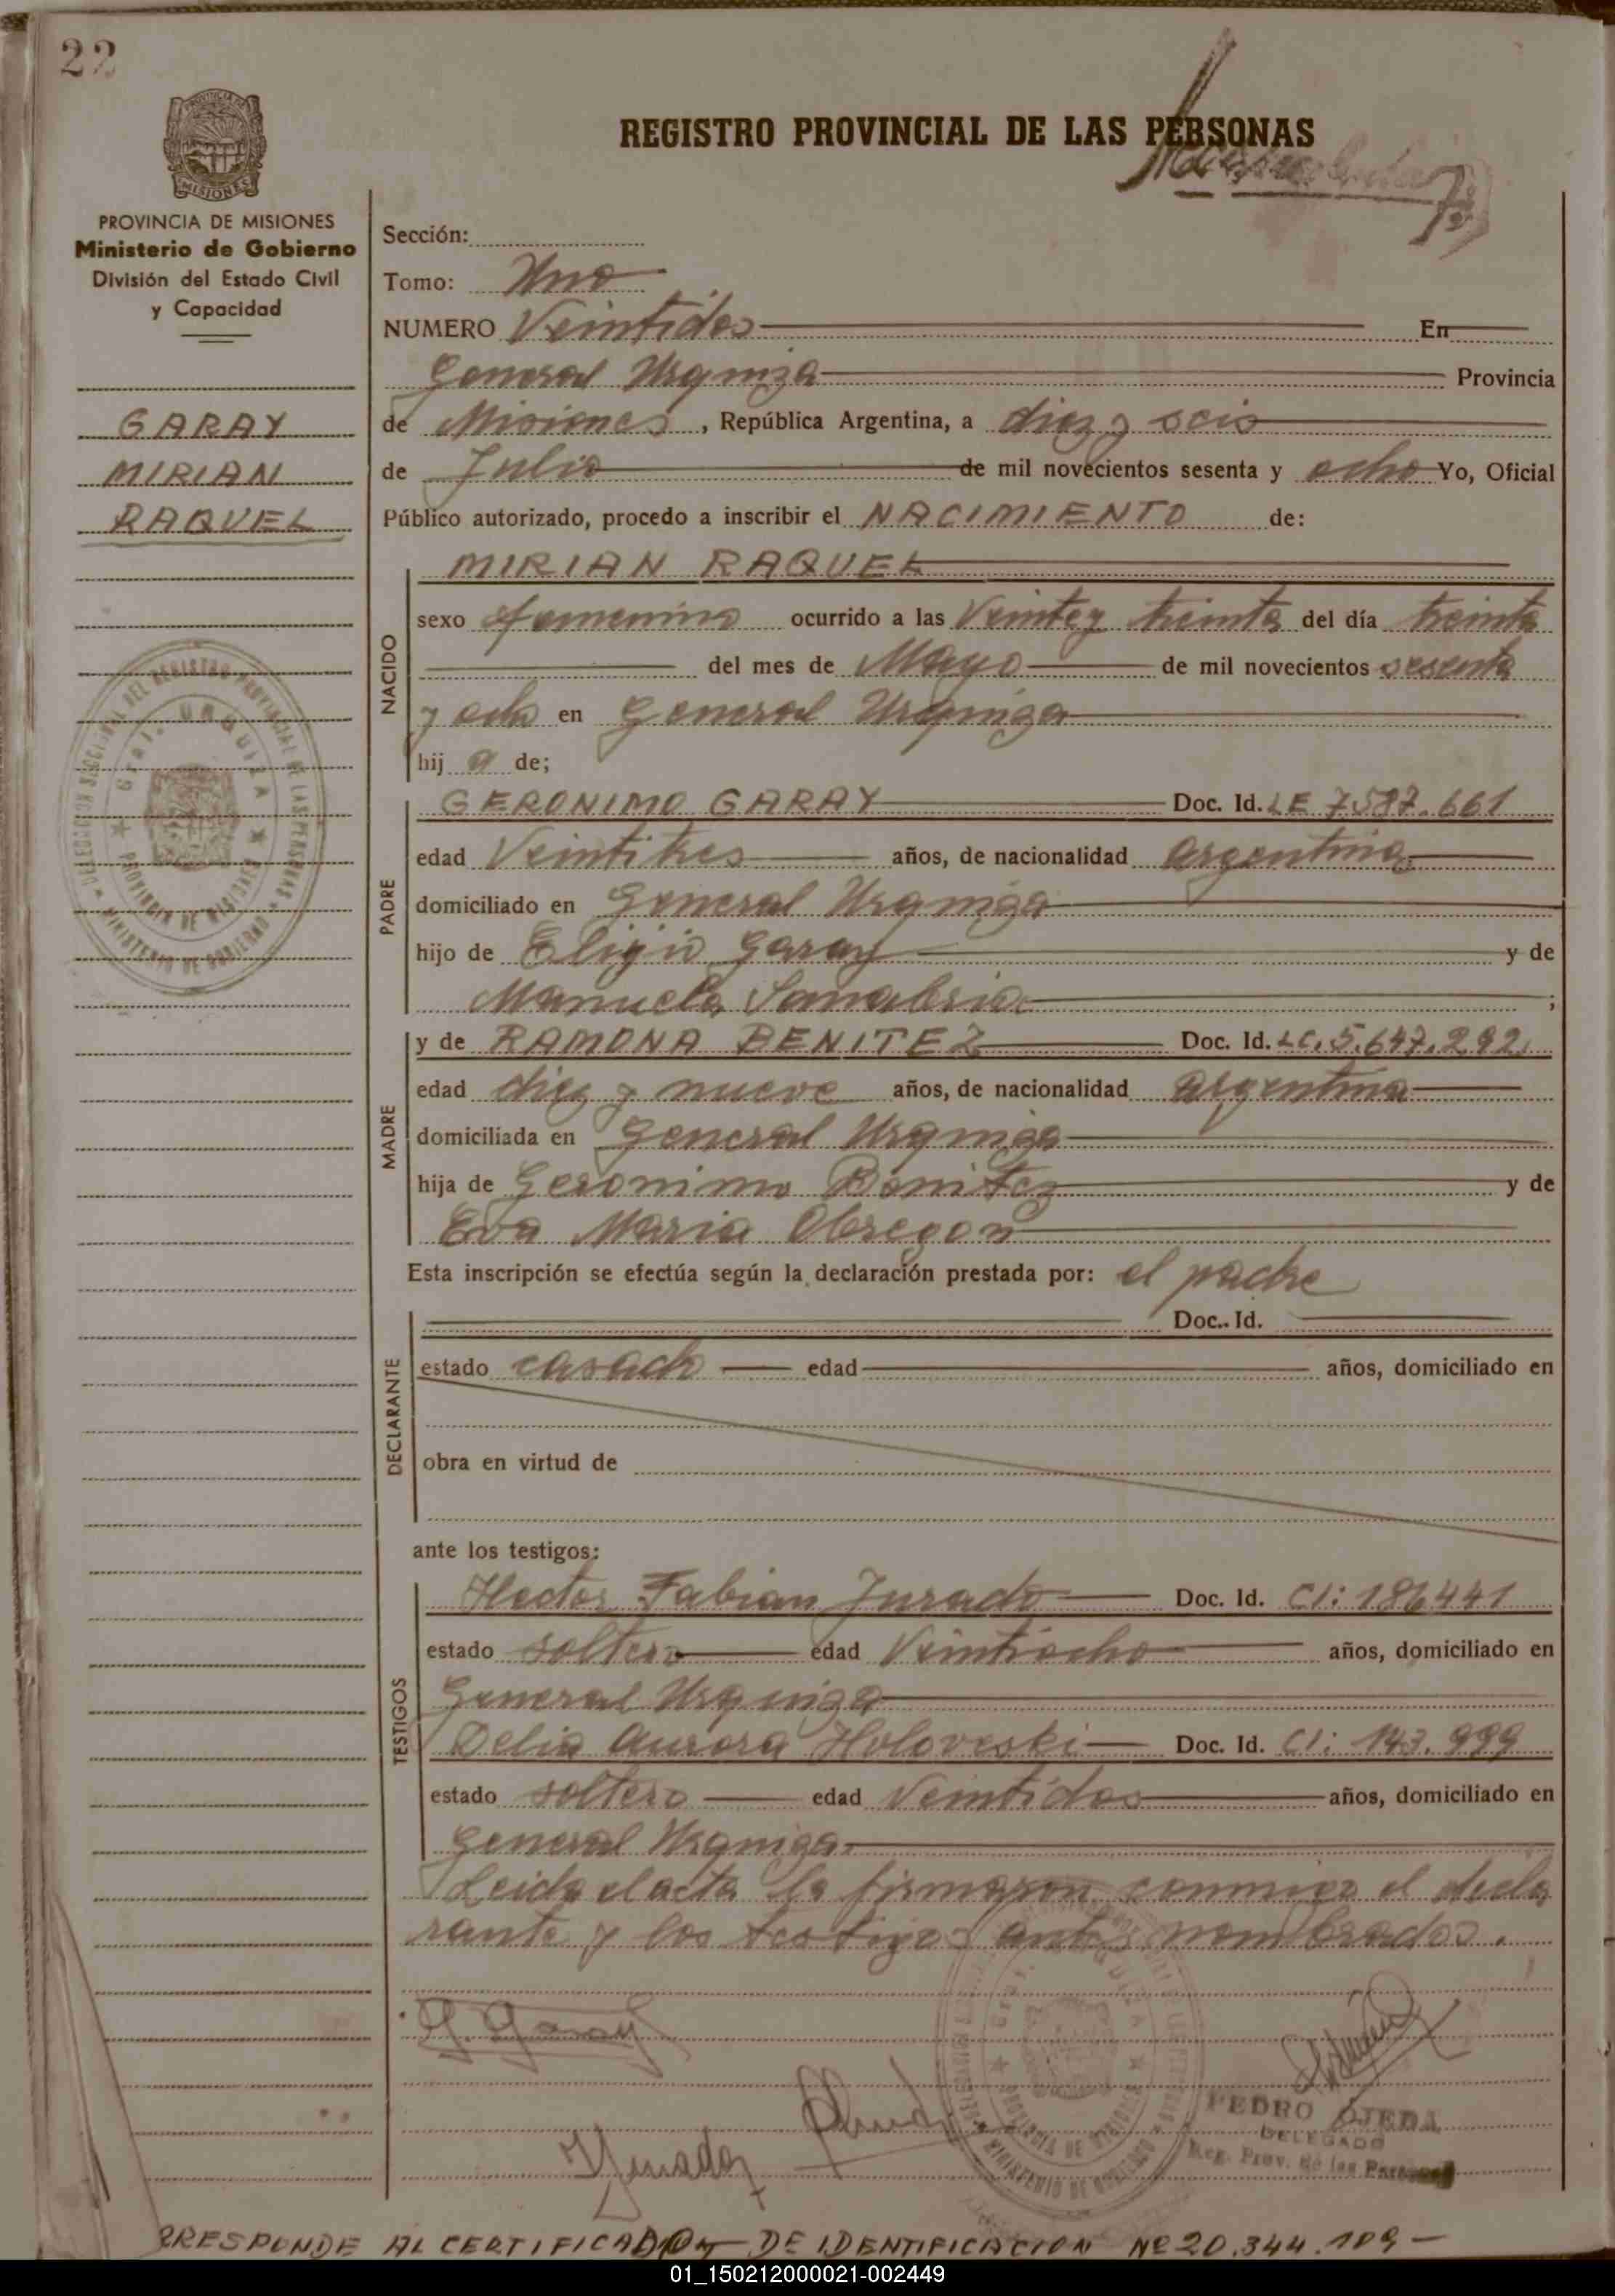 22
REGISTRO PROVINCIAL DE LAS PERSONAS
PROVINCIA DE MISIONES
Ministerio de Gobierno
División del Estado Civil
y Capacidad
GARAY
MIRIAN
RAQUEL
Sección:
Tomo: Uno
NUMERO Veintidos En
General Urquiza Provincia
de Misiones, República Argentina, a diez y seis
de Julio de mil novecientos sesenta y ocho Yo, Oficial
Público autorizado, procedo a inscribir el NACIMIENTO de:
NACIDO
MIRIAN RAQUEL
sexo femenino ocurrido a las Veinte y treinta del día treinta
del mes de Mayo de mil novecientos sesenta
y ocho en General Urquiza
hij a de;
PADRE
GERONIMO GARAY Doc. Id. LE 7.587.661
edad Veintitres años, de nacionalidad argentina
domiciliado en General Urquiza
hijo de Eligio Garay y de
Manuela Sanabria ;
MADRE
y de RAMONA BENITEZ Doc. Id. LC. 5.647.292
edad diez y nueve años, de nacionalidad argentina
domiciliada en General Urquiza
hija de Geronimo Benitez y de
Eva Maria Obregon
Esta inscripción se efectúa según la declaración prestada por: el padre
DECLARANTE
Doc. Id.
estado casado edad años, domiciliado en
obra en virtud de
ante los testigos:
TESTIGOS
Hector Fabian Jurado Doc. Id. CI: 186441
estado soltero edad Veintiocho años, domiciliado en
General Urquiza
Delia Aurora Holoveski Doc. Id. CI: 143.999
estado soltero edad Veintidos años, domiciliado en
General Urquiza
Leida el acta la firmaron conmigo el decla
rante y los testigos antes nombrados.
G. Garay
PEDRO OJEDA
DELEGADO
Reg. Prov. de las Personas
RRESPONDE AL CERTIFICADO DE IDENTIFICACION Nº 20.344.109
01_150212000021-002449